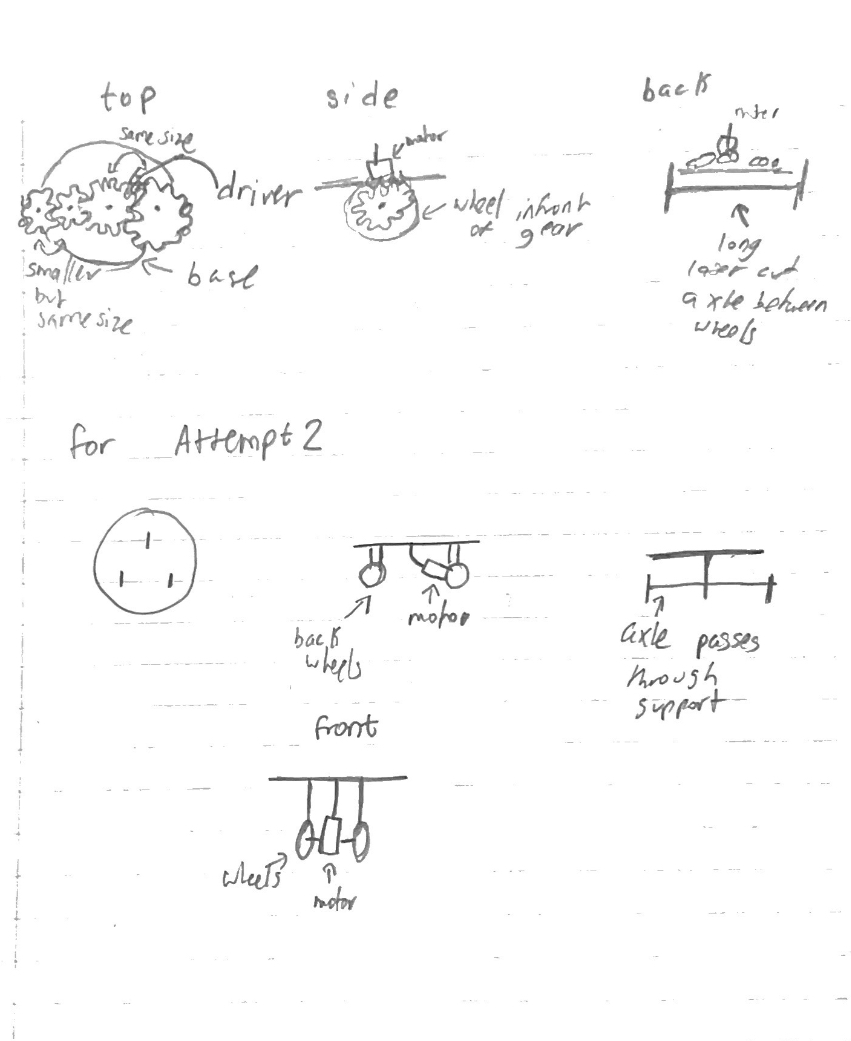 top
same size
driver
smaller
but
same size
base
side
motor
wheel infront
of gear
back
moter
long
lazer cut
axle between
wheels
for Attempt 2
back
wheels
motor
axle passes
through
support
front
wheels
motor